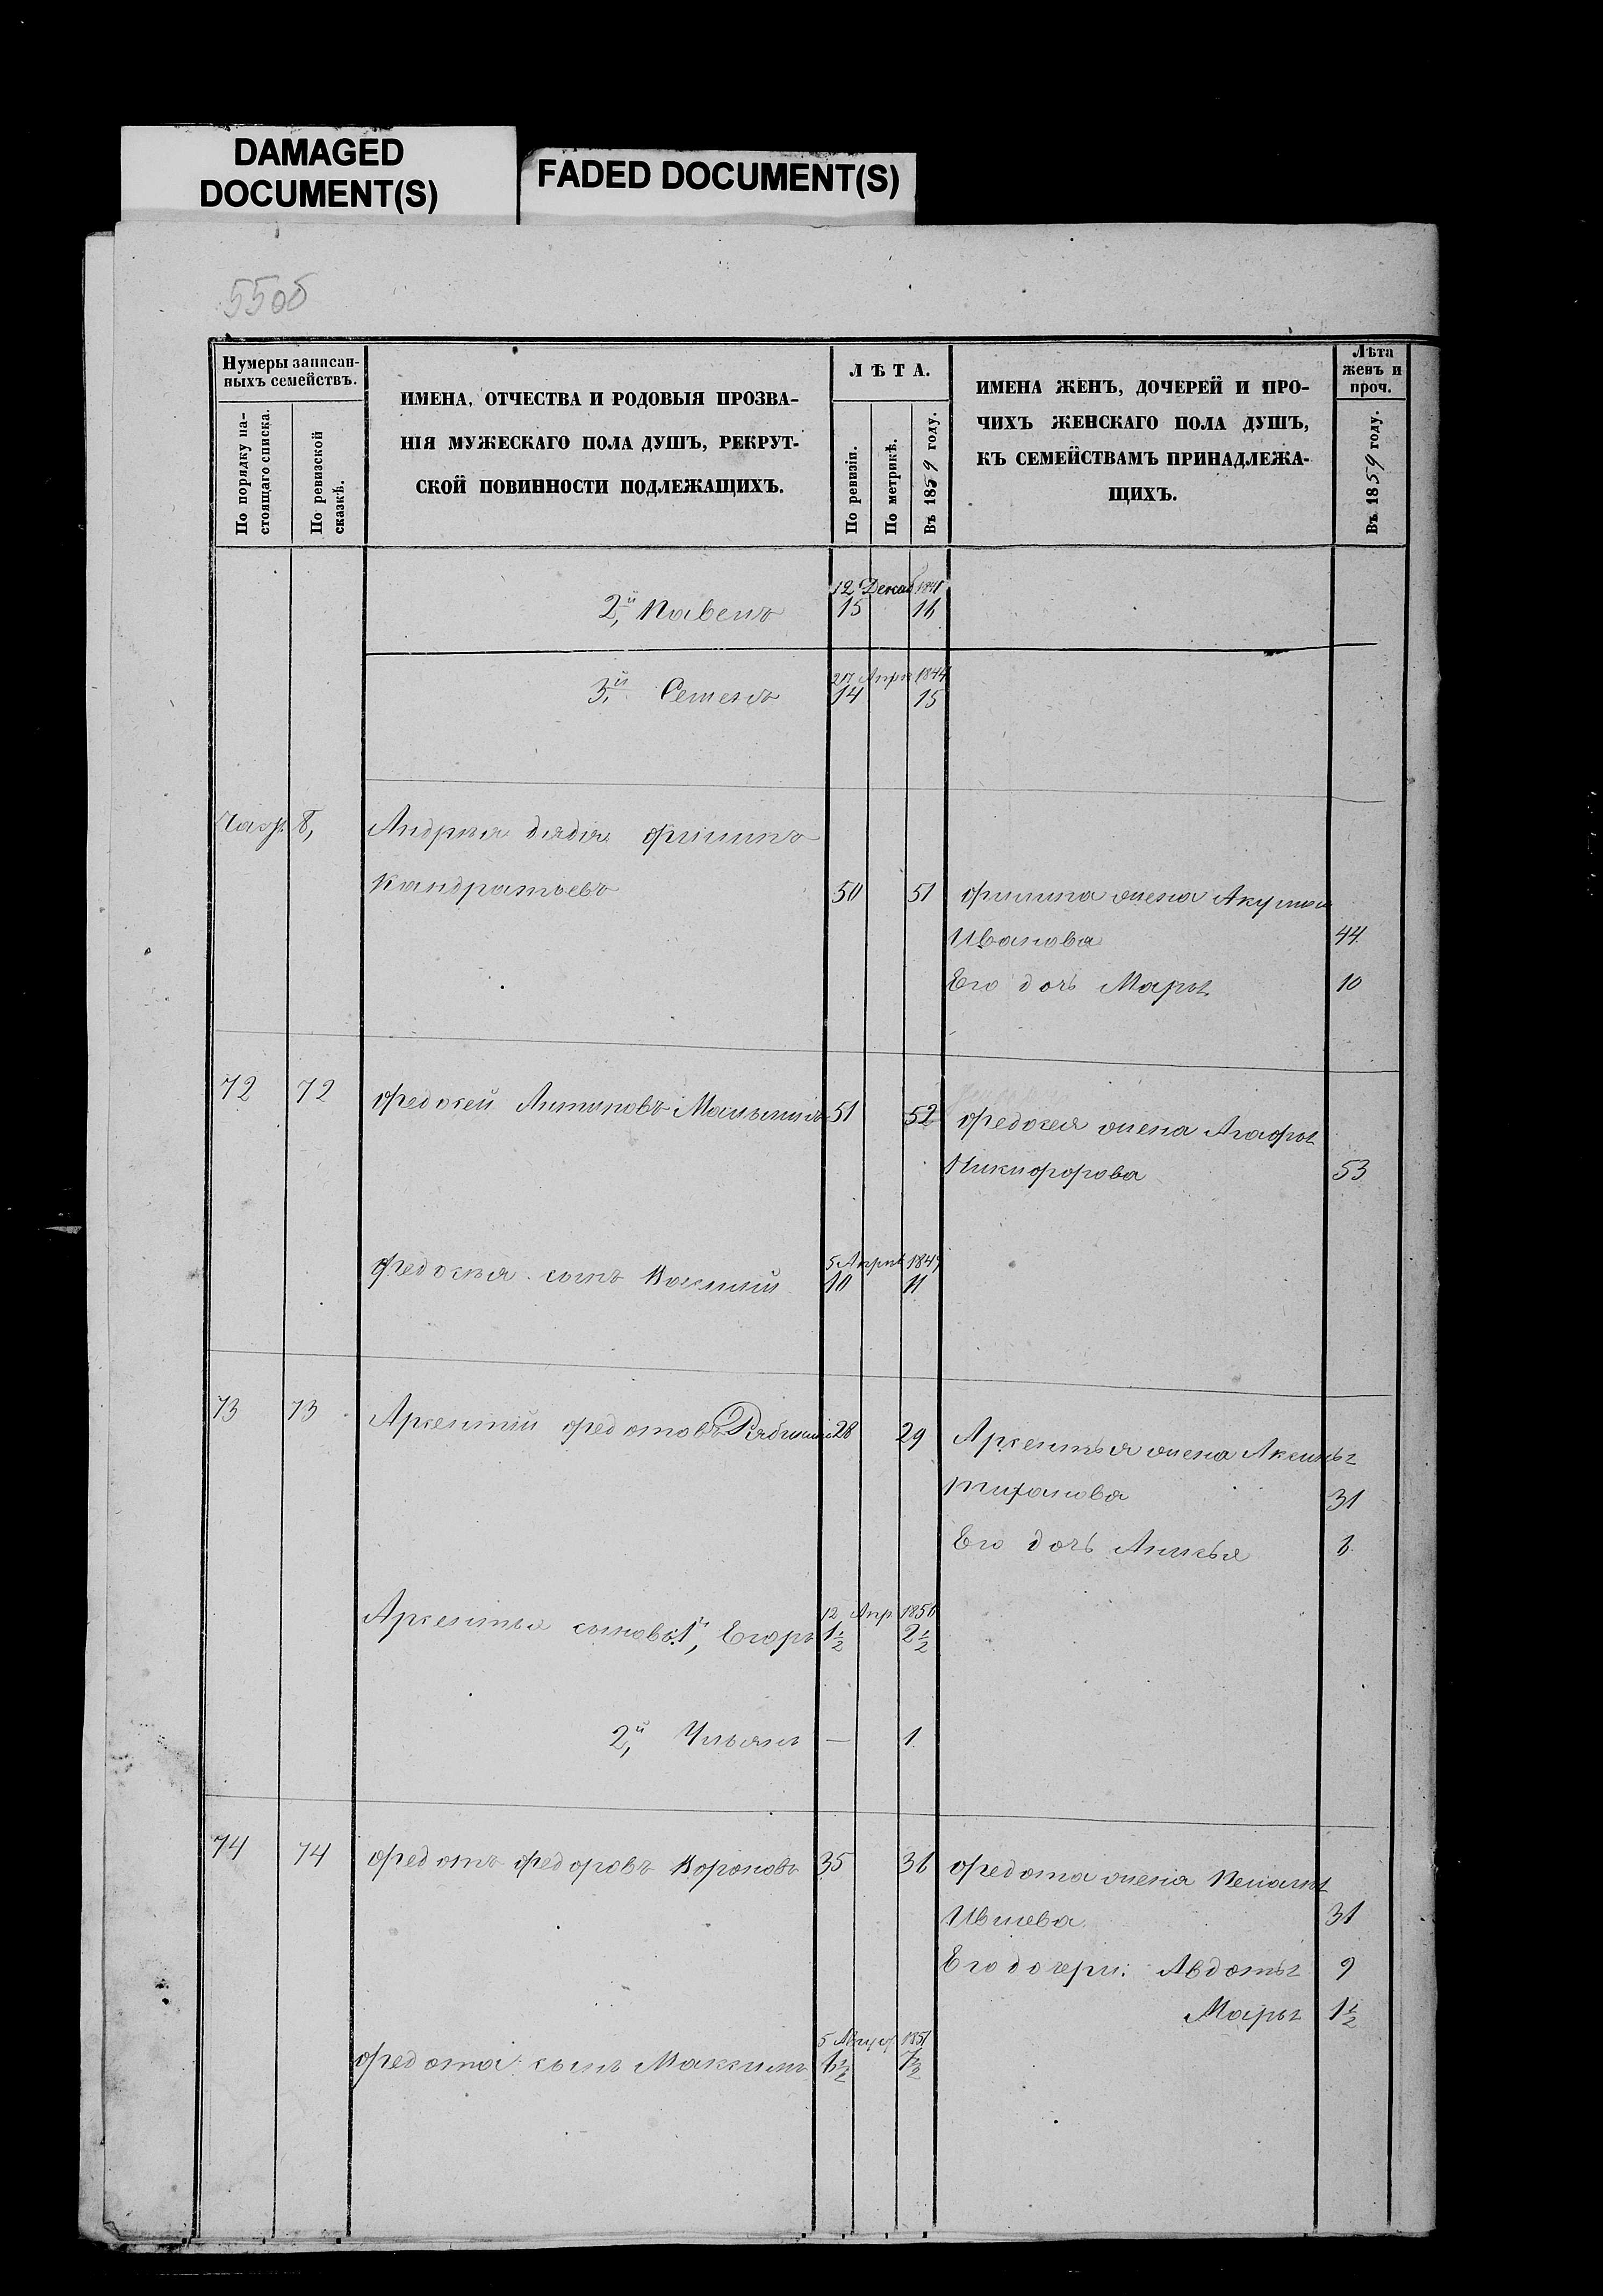 DAMAGED
DOCUMENT(S)
FADED DOCUMENT(S)
55об
Нумеры записан-
ныхъ семействъ.
По порядку на-
стоящаго списка.
По ревизской
сказкѣ.
ИМЕНА, ОТЧЕСТВА И РОДОВЫЯ ПРОЗВА-
НІЯ МУЖЕСКАГО ПОЛА ДУШЪ, РЕКРУТ-
СКОЙ ПОВИННОСТИ ПОДЛЕЖАЩИХЪ.
ЛѢТА.
По ревизіи.
По метрикѣ.
Въ 1859 году.
ИМЕНА ЖЕНЪ, ДОЧЕРЕЙ И ПРО-
ЧИХЪ ЖЕНСКАГО ПОЛА ДУШЪ,
КЪ СЕМЕЙСТВАМЪ ПРИНАДЛЕЖА-
ЩИХЪ.
Лѣта
женъ и
проч.
Въ 1859 году.
12 Декаб 1841
2й, Павелъ 15 16
27 Апрѣ 1844
3й, Семенъ 14 15
8, Андрея дядя Филипъ
Кандратьевъ 50 51 Филипа жена Акулина
Иванова 44
Его дочь Марья 10
72 72 Федосей Антиповъ 51 52 Федосея жена Агафья
Никифорова 53
5 Апрѣл 1849
Федосѣя сынъ Василій 10 11
73 73 Арсентій Федотовъ 28 29 Арсентья жена Аксинья
Тиханова 31
Его дочь Анисья
12 Апр 1856
Арсентья сыновья: 1й, Егоръ 1½ 2½
2й, Ульянъ — 1
74 74 Федотъ Федоровъ Вороновъ 35 36 Федота жена Пелагея
31
Его дочери: Авдотья 9
Марья 1½
5 Август 1851
Федота сынъ Максимъ 6½ 7½